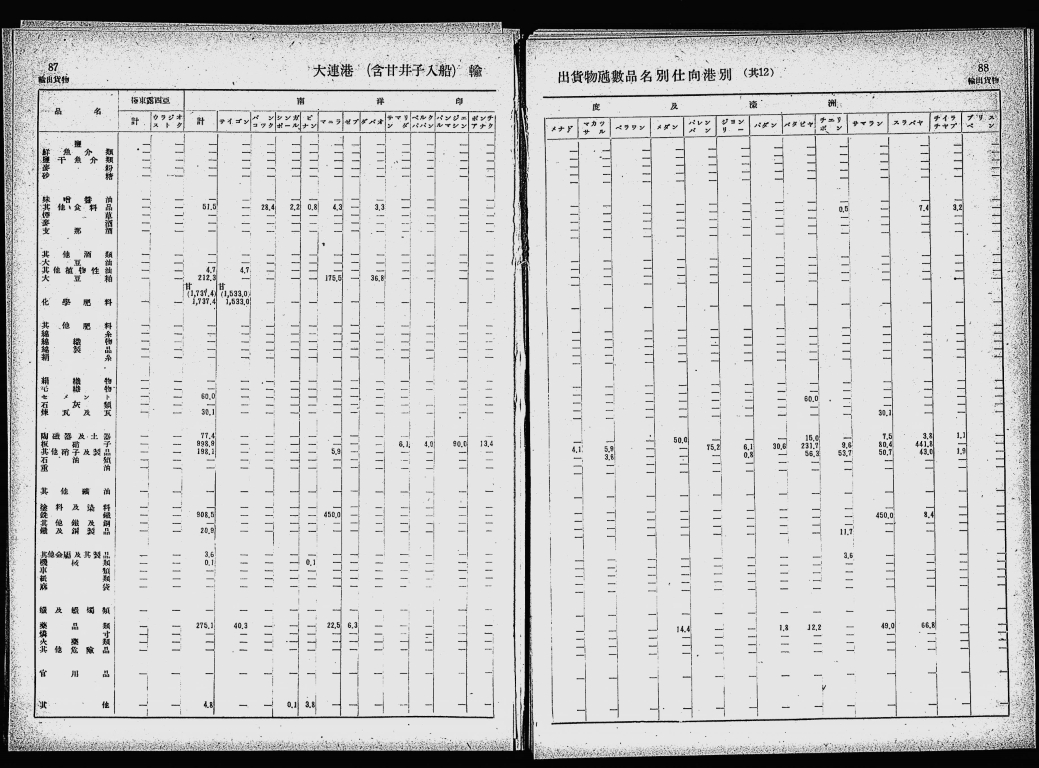 87
輸出貨物
大連港 (含甘井子入船) 輸
品名 極東露西亞 南洋印
計 ウラジオストク 計 サイゴン バンコツク シンガポール ピナン マニラ セブ ダバオ サマリンダ バルクパパン バンジエルマシン ポンチアナク
鹽
鮮魚介類
鹽干魚介類
麥粉
砂糖
味噌醬油
其他食料品 51.5 28.4 2.2 0.8 4.3 3.3
煙草
麥酒
支那酒
其他酒類
大豆油
其他植物性油 4.7 4.7
大豆粕 212.3 175.5 36.8
甘 甘
(1,737.4) (1,533.0)
化學肥料 1,737.4 1,533.0
其他肥料
綿糸
綿織物
綿製品
絹糸
絹織物
毛織物
セメント 60.0
石灰類
煉瓦及瓦 30.1
陶磁器及土器 77.4
板硝子 998.9 6.1 4.0 90.0 13.4
其他硝子及製品 198.1 5.9
石油類
重油
其他鑛油
塗料及染料
銑鐵 908.5 450.0
其他鐵及鋼
鐵及鋼製品 20.9
其他金屬及其製品 3.6
機械類 0.1 0.1
車類
紙類
麻袋
蠟及蠟燭類
藥品類 275.1 40.3 22.5 6.3
燐寸
火藥類
其他危險品
官用品
其他 4.8 0.1 3.8
出貨物噸數品名別仕向港別 (共12)
88
輸出貨物
度及濠洲
メナド マカツサル ベラワン メダン パレンバン ジヨホリー パダン バタビヤ チエリボン サマラン スラバヤ チイラチヤプ ブリスベン
0.5 7.4 3.2
60.0
30.1
50.0 15.0 7.5 3.8 1.1
4.1 5.9 75.2 6.1 30.6 231.7 9.6 80.4 441.8
3.6 0.8 56.3 53.7 50.7 43.0 1.9
450.0 8.4
11.7
3.6
14.4 1.8 12.2 49.0 66.8